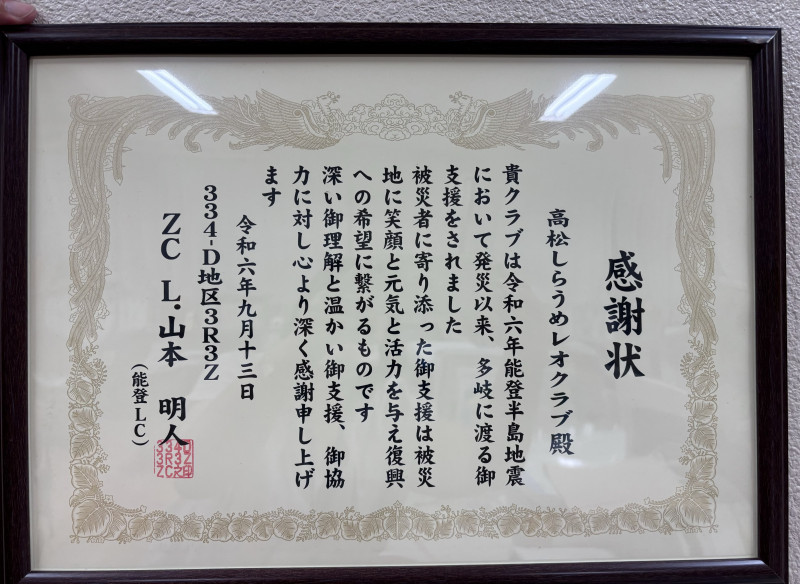 感謝状
高松しらうめレオクラブ殿
貴クラブは令和六年能登半島地震
において発災以来、多岐に渡る御
支援をされました
被災者に寄り添った御支援は被災
地に笑顔と元気と活力を与え復興
への希望に繋がるものです
深い御理解と温かい御支援、御協
力に対し心より深く感謝申し上げ
ます
令和六年九月十三日
334-D地区3R3Z
ZC L.山本 明人
(能登LC)